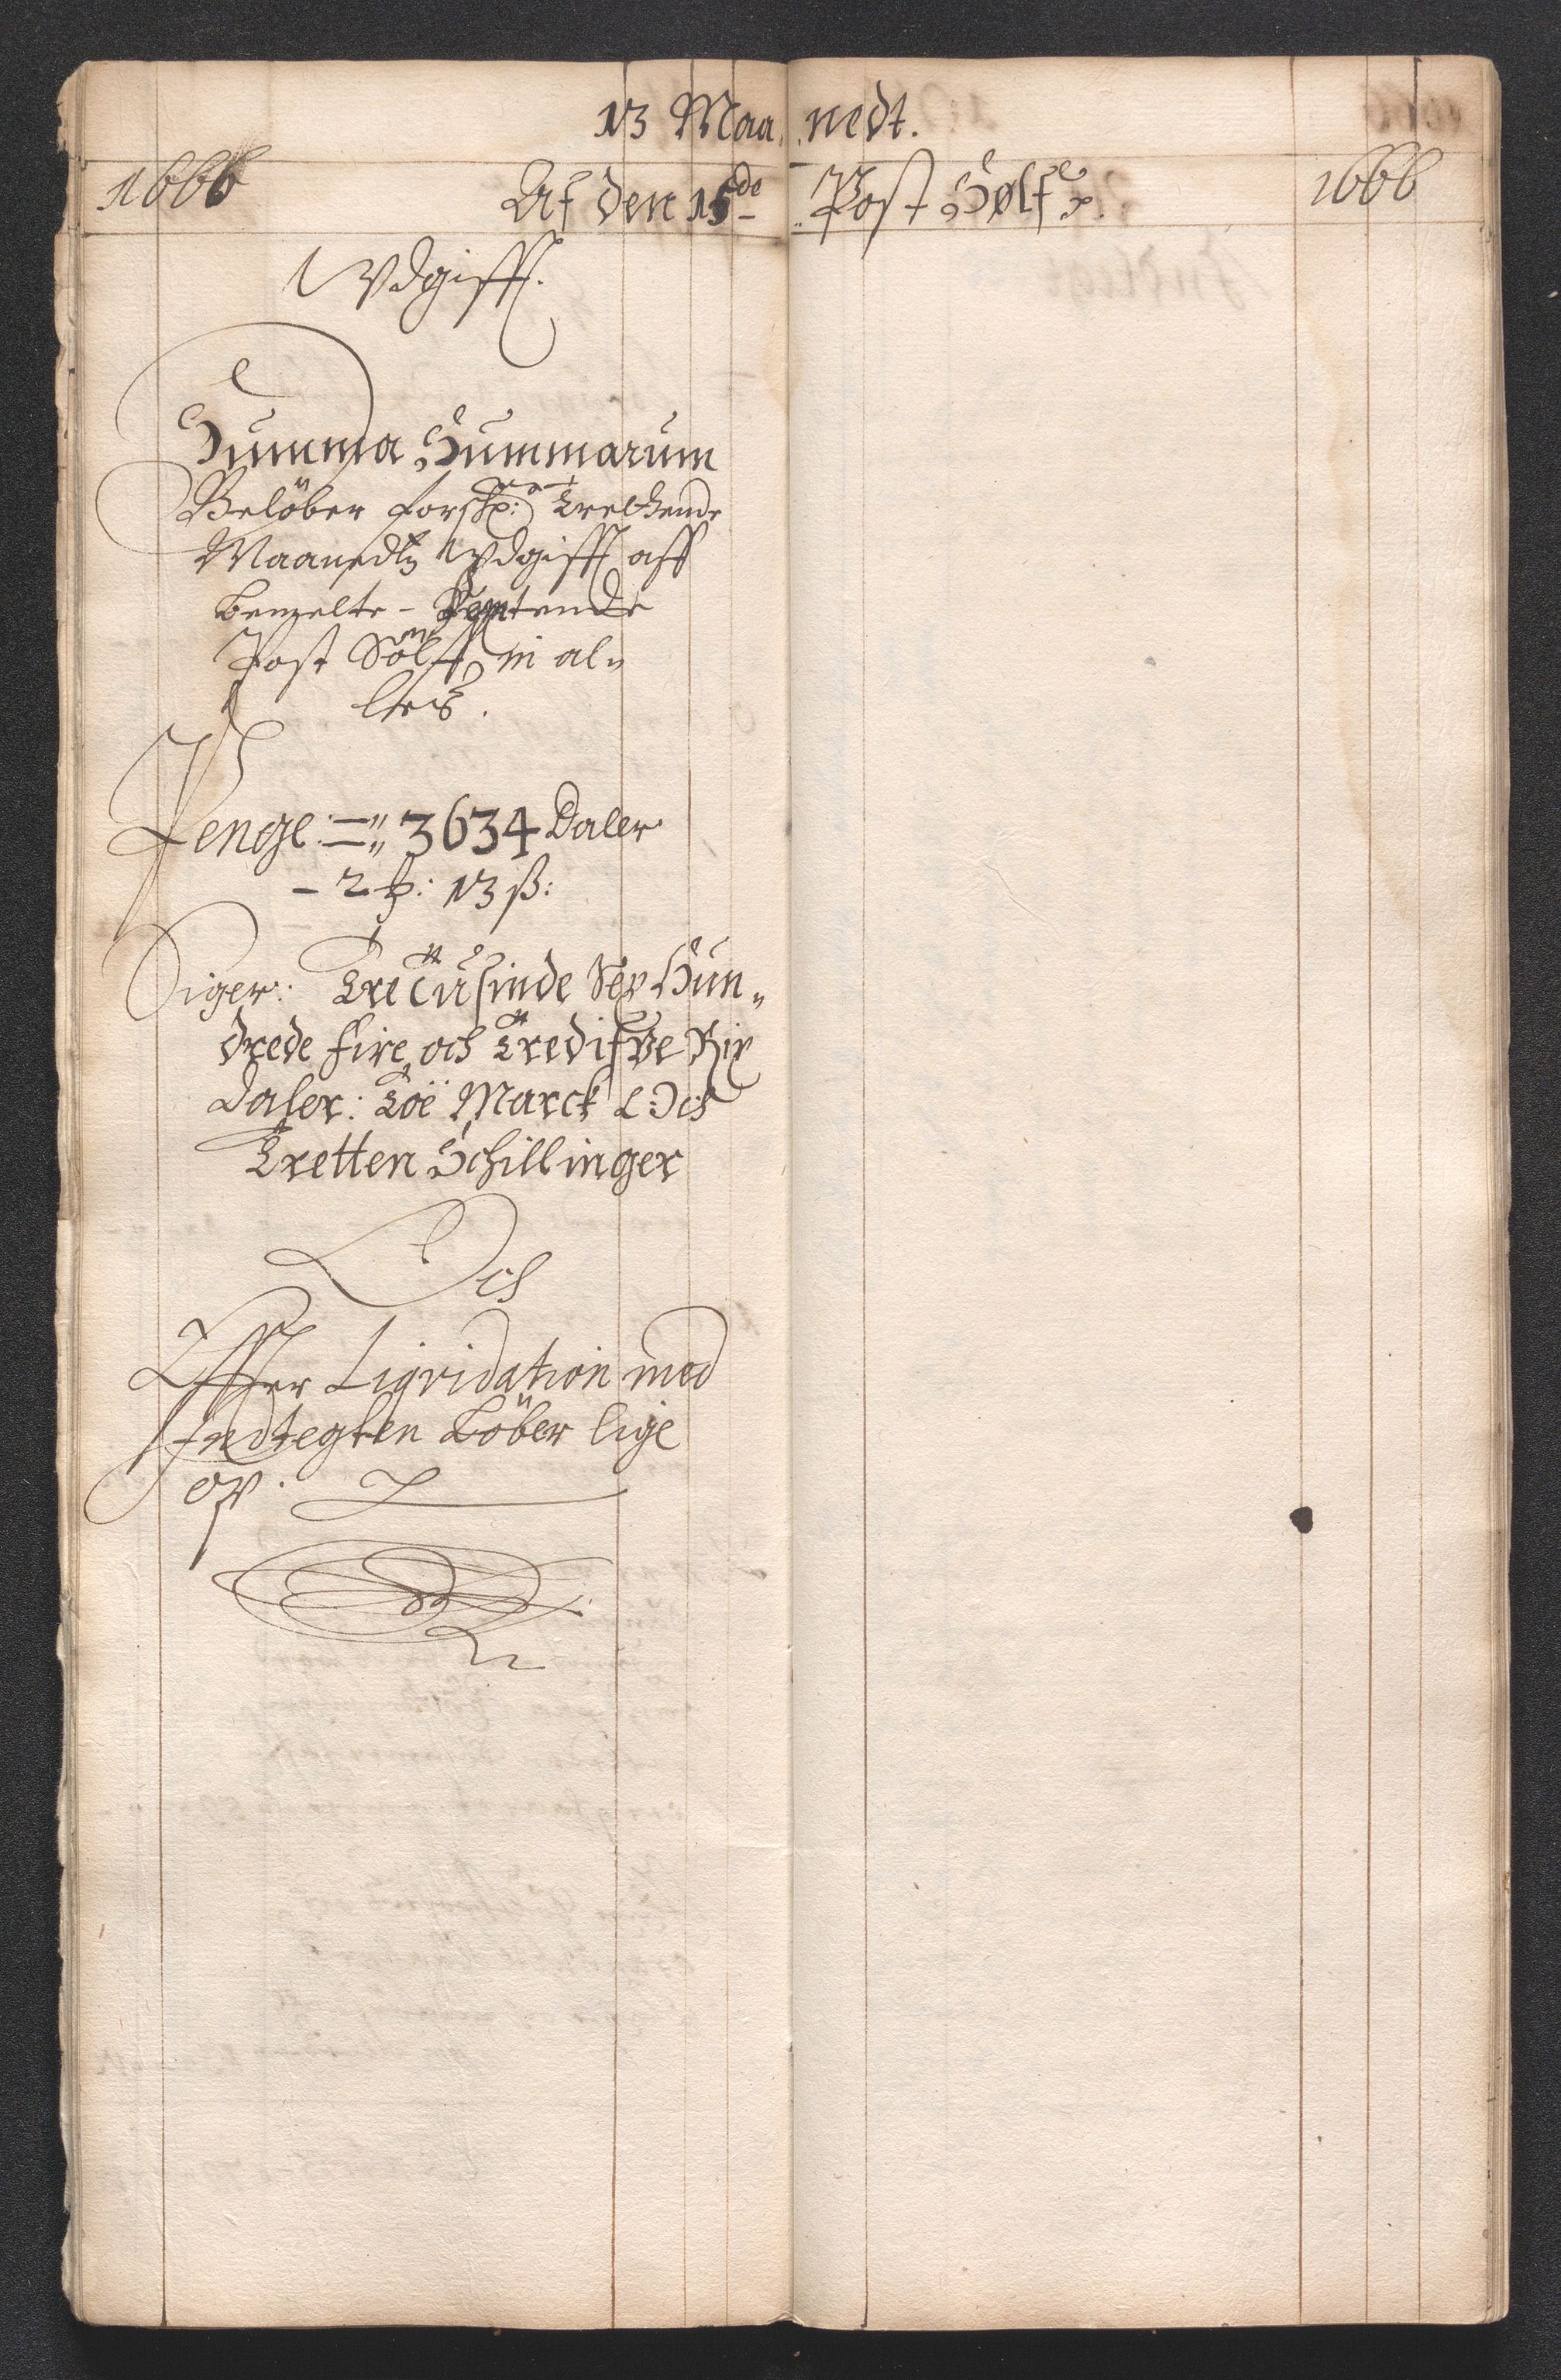 13 Maa nedt.
1666 Af den 15de Post Sølf 1666
Vdgifft.
Summa Summarum
Belöber Trettende
Maanedtz Vdgifft aff
bemelte - Femtende
Post Sölff, in al„
les.
Penge: =„ 3634 Daler
- 2 ꝭ: 13 ß:
Siger: Tretusinde Sex Hun„
drede fire och Tredifve Rix
daler: Toë Marck Och
Tretten Schillinger
Och
Effter Liqvidation med
Indtegten Löber lige
op.